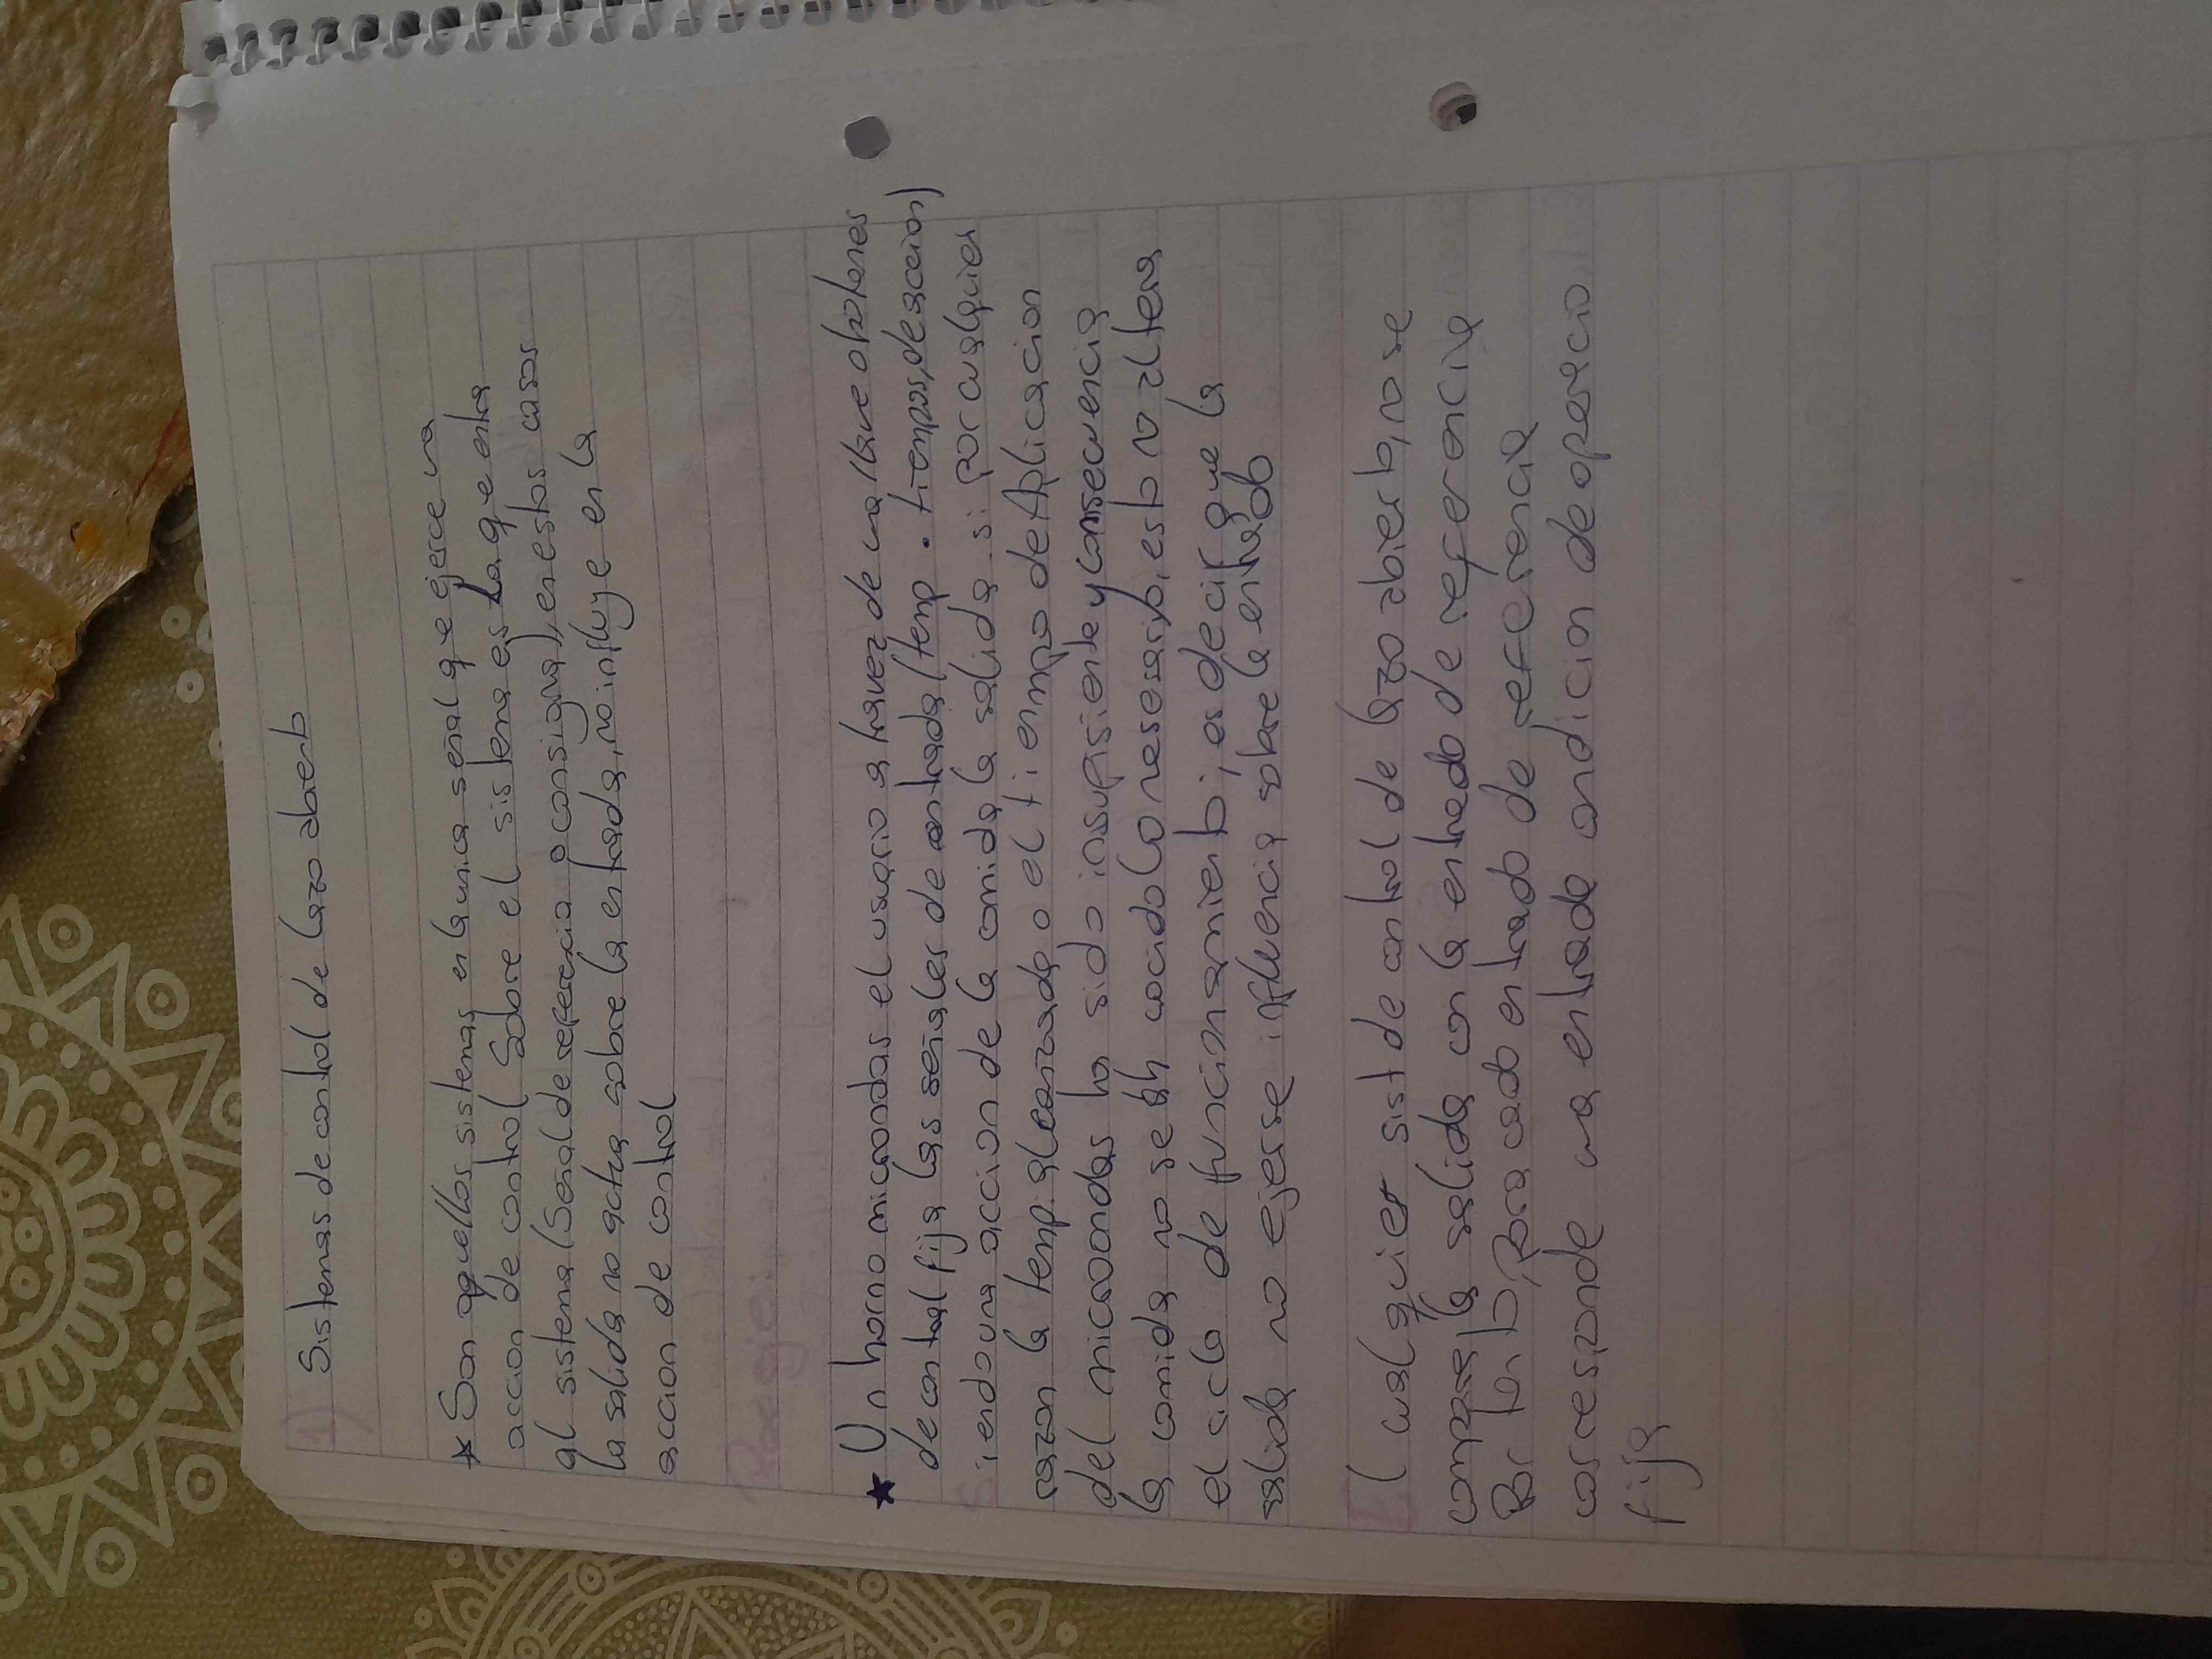 1) Sistemas de control de lazo abierto
* Son aquellos sistemas en la unica señal que ejerce una
accion de control sobre el sistema es la que entra
al sistema (Señal de referencia o consigna), en estos casos
la salida no actua sobre la entrada, no influye en la
accion de control
* Un horno microondas el usuario a travez de una llave o botones
de control fija las señales de entrada (temp. tiempos, de accion)
Siendo una accion de la comida la salida si por cualquier
razon la temp. alcanzada o el tiempo de Aplicacion
del microondas ha sido insufisiente y consecuencia
la comida no se ah cocido lo nesesario, esto no altera
el siclo de funcionamiento; es decir que la
salida no ejerse influencia sobre la entrada
El cualquier sist de control de lazo abierto, no se
compara la salida con la entrada de referencia
Por tanto, Para cada entrada de referencia
corresponde una entrada condicion de operacio
fija